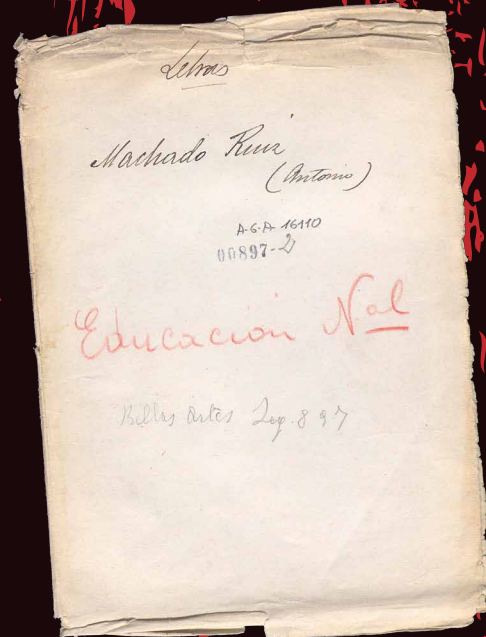 Letras
Machado Ruiz
(Antonio)
A-G-A 16110
00897-2
Educación Nal
Bellas Artes Leg. 897